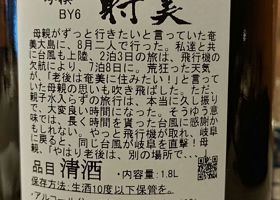 BY6
射美
母親がずっと行きたいと言っていた奄
美大島に、8月二人で行った。私達と共
に台風も上陸、2泊3日の旅は、飛行機の
欠航により、7泊8日に。荒狂った天気
が、「老後は奄美に住みたい！」と言って
いた母親の思いも吹き飛ばした。ただ、
親子水入らずの旅行は、本当に久し振り
で、大変良い時間になった。そうゆう意
味では、長く時間を貰った台風に感謝か
もしれない。やっと飛行機が取れ、岐阜
に戻ると、同じ台風が岐阜を直撃！母
親、「やはり老後は、別の場所で・・・
品目 清酒 ・内容量：1.8L
保存方法:生酒10度以下保管を。